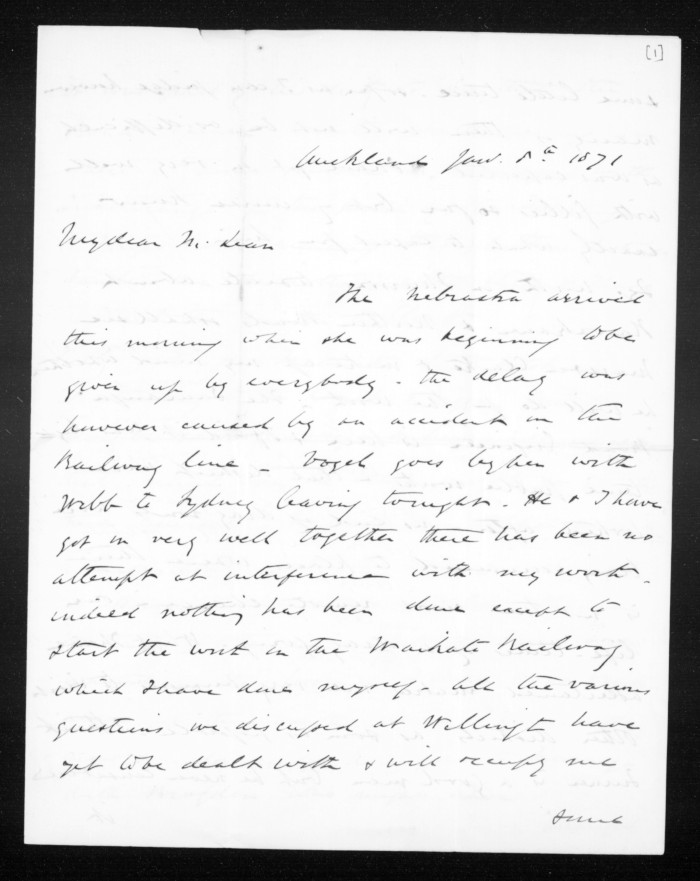 [1]
Auckland Jan. 8th 1871
My dear McLean
The Nebraska arrived
this morning when she was beginning to be
given up by everybody - the delay was
however caused by an accident in the
Railway line - Vogel goes by her with
Webb to Sydney leaving tonight. He & I have
got on very well together there has been no
attempt at interference with my work -
indeed nothing has been done except to
start the work in the Waikato Railway
which I have done myself - all the various
questions we discussed at Wellingt have
yet to be dealt with & will occupy me
some